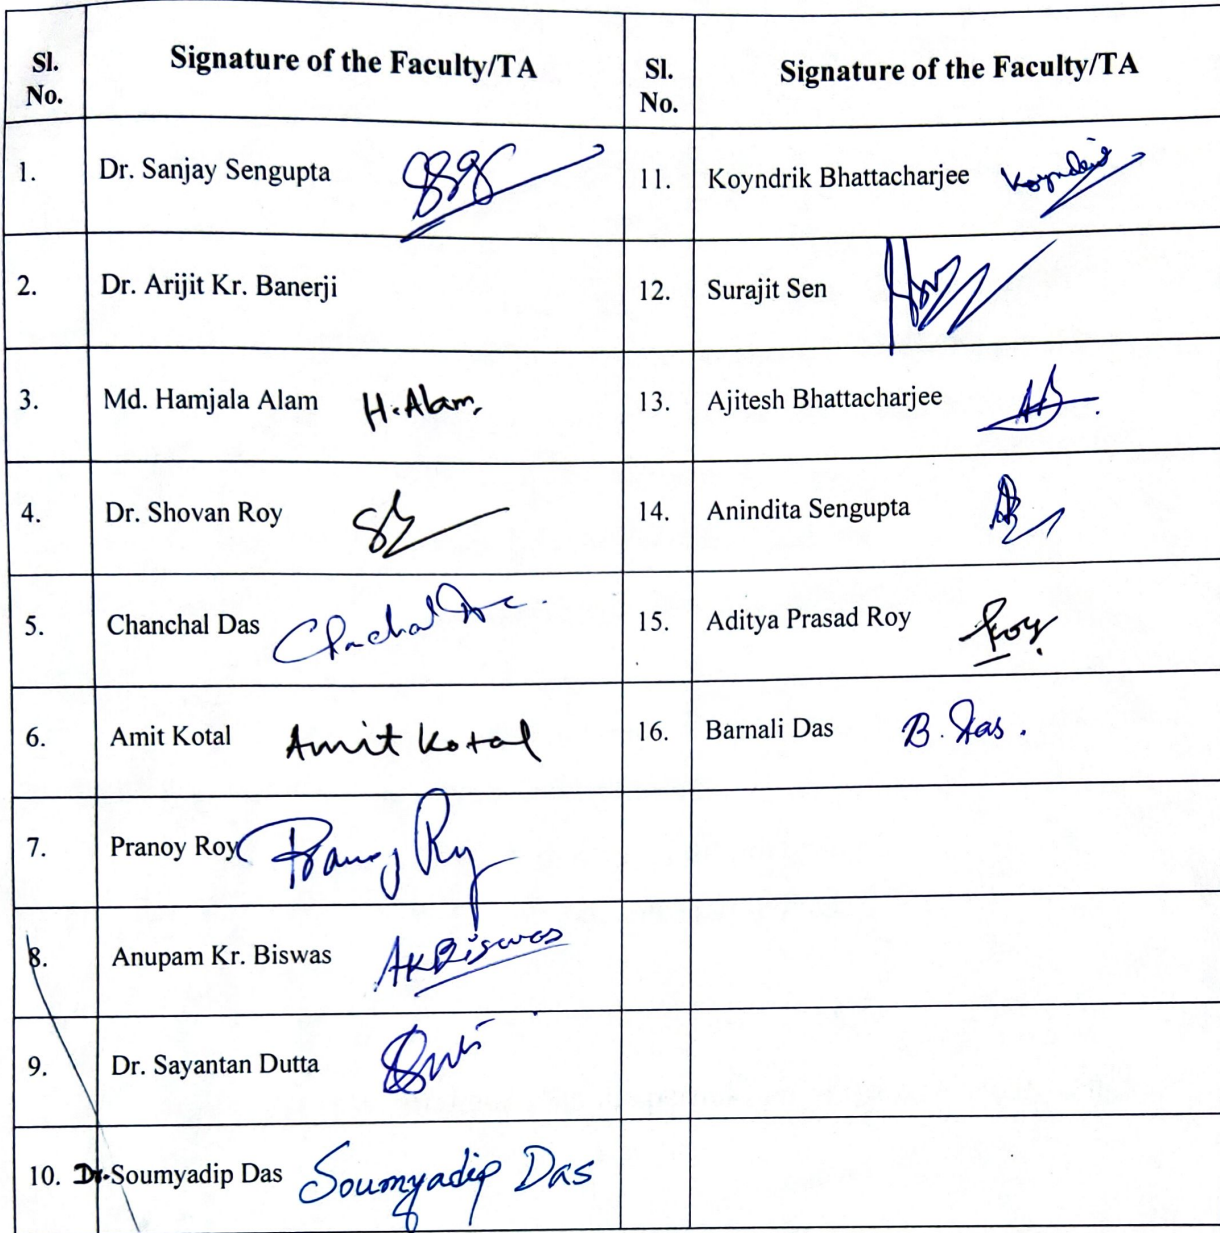 Sl. No. Signature of the Faculty/TA Sl. No. Signature of the Faculty/TA
1. Dr. Sanjay Sengupta 11. Koyndrik Bhattacharjee
2. Dr. Arijit Kr. Banerji 12. Surajit Sen
3. Md. Hamjala Alam H. Alam. 13. Ajitesh Bhattacharjee
4. Dr. Shovan Roy 14. Anindita Sengupta
5. Chanchal Das Chanchal 15. Aditya Prasad Roy Roy
6. Amit Kotal Amit Kotal 16. Barnali Das B. Das.
7. Pranoy Roy Pranoy Roy
8. Anupam Kr. Biswas AKBiswas
9. Dr. Sayantan Dutta
10. Dr. Soumyadip Das Soumyadip Das